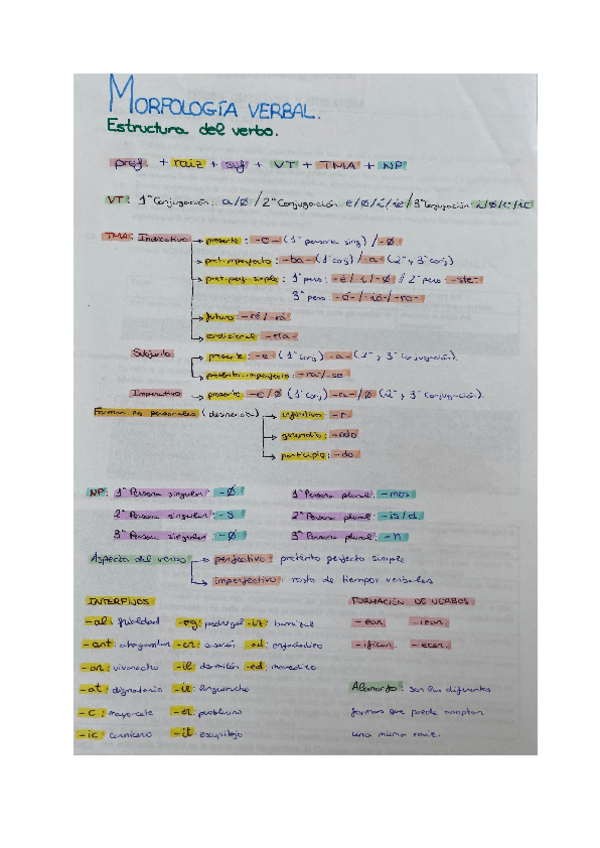 MORFOLOGÍA VERBAL.
Estructura del verbo.
pref. + raiz + suf + VT + TMA + NP
VT: 1ª Conjugación: a/Ø / 2ª Conjugación e/Ø/i/ie / 3ª Conjugación i/Ø/e/ie
TMA: Indicativo → presente: -o- (1ª persona sing) / -Ø
→ pret. imperfecto: -ba- (1ª conj) / -a- (2ª y 3ª conj)
→ pret. perf. simple: 1ª pers: -é / -i / -Ø // 2ª pers: -ste-
3ª pers: -ó- / -ió- / -ro-
→ futuro: -ré / -rá
→ condicional: -ría-
Subjunto → presente: -e- (1ª conj) -a- (1ª y 3ª conjugación).
→ pretérito imperfecto: -ra / -se
Imperativo → presente: -e/Ø (1ª conj) -a-/Ø (2ª y 3ª conjugación).
Formas no personales (desinencia) → infinitivo: -r
→ gerundio: -ndo
→ participio: -do
NP: 1ª Persona singular: -Ø 1ª Persona plural: -mos
2ª Persona singular: -s 2ª Persona plural: -is/d
3ª Persona singular: -Ø 3ª Persona plural: -n
Aspecto del verbo → perfectivo: pretérito perfecto simple
→ imperfectivo: resto de tiempos verbales
INTERFIJOS FORMACIÓN DE VERBOS
-al: frialdad -eg: pedregal -iz: barrizal -ear -izar
-ant: -er: -ad: -ificar -ecer
-ar: vivaracho -il: dormilón -ed: movedizo
-at: dignatario -ir: Alomorfo: son las diferentes
-c: -er: formas que puede adoptar
-ic: carnicero -it: una misma raiz.